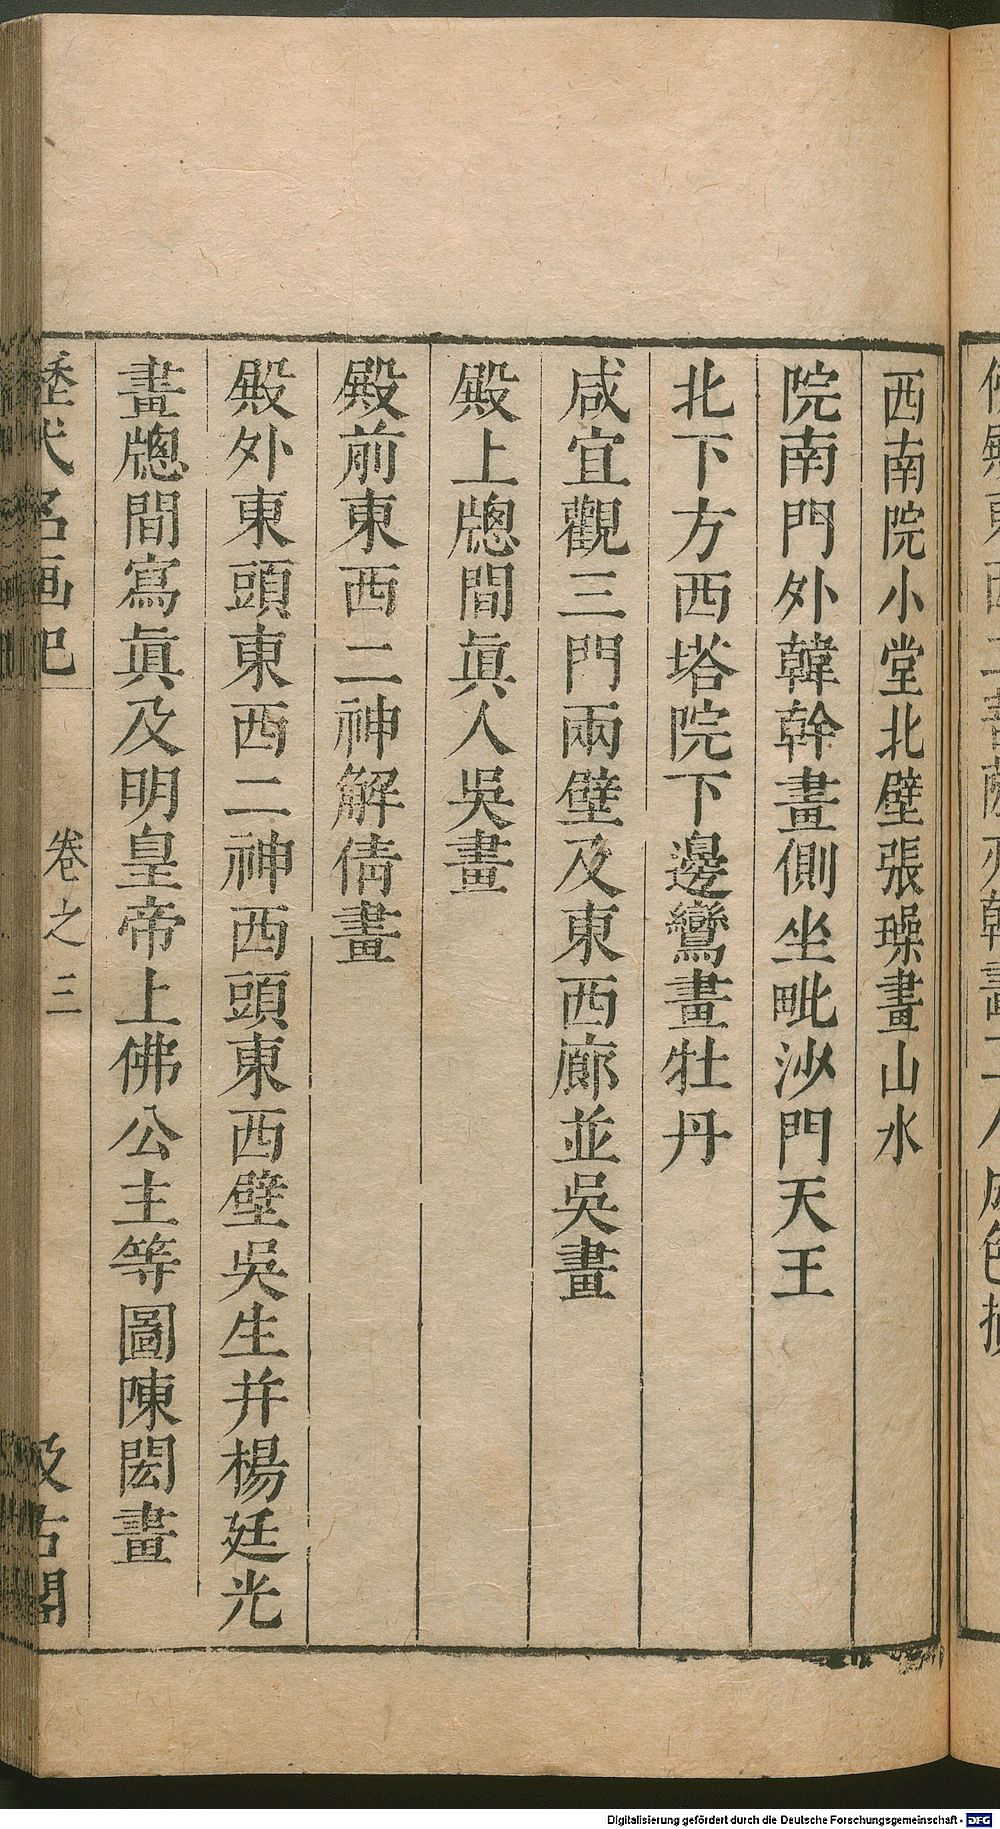 西南院小堂北壁張璪畫山水
院南門外韓幹畫側坐毗沙門天王
北下方西塔院下邊鸞畫牡丹
咸宜觀三門兩壁及東西廊並吳畫
殿上牕間眞人吳畫
殿前東西二神解倩畫
殿外東頭東西二神西頭東西壁吳生并楊廷光
畫牕間寫眞及明皇帝上佛公主等圖陳閎畫
歷代名畫記 卷之三 汲古閣
Digitalisierung gefördert durch die Deutsche Forschungsgemeinschaft - DFG